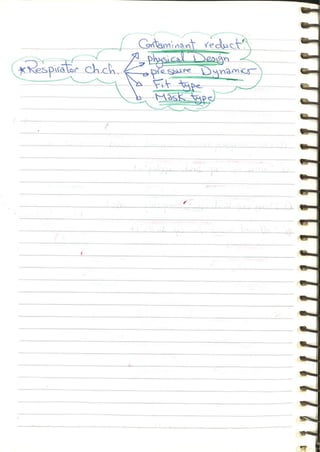 Contaminant reduct'
physical Design
* Respirator ch.ch. pressure Dynamics
Fit type
Mask type